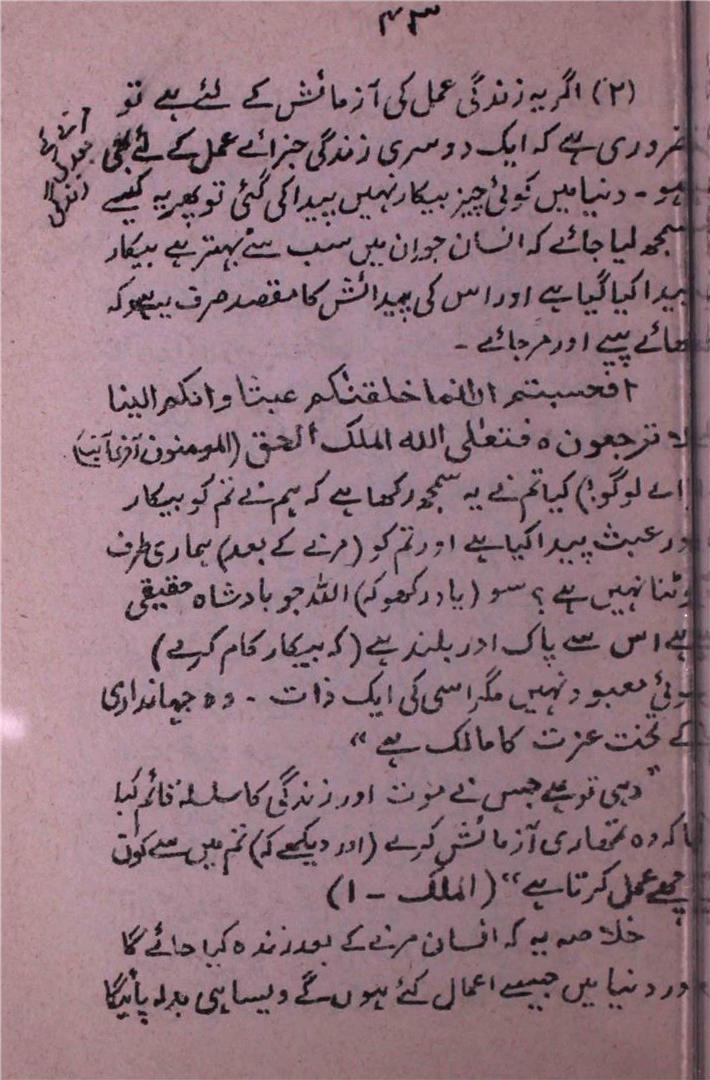 ۴۳
(۲) اگر یہ زندگی عمل کی آزمائش کے لئے ہے تو
ضروری ہے کہ ایک دوسری زندگی جزائے عمل کے لئے بھی
ہو - دنیا میں کوئی چیز بیکار نہیں پیدا کی گئی تو پھر یہ کیسے
سمجھ لیا جائے کہ انسان جو ان میں سب سے بہتر ہے بیکار
پیدا کیا گیا ہے اور اس کی پیدائش کا مقصد صرف یہ ہو کہ
کھائے پیے اور مر جائے -
افحسبتم انما خلقنٰکم عبثا وانکم الینا
لا ترجعون ہ فتعٰلی اللہ الملک الحق (المومنون
(اے لوگو!) کیا تم نے یہ سمجھ رکھا ہے کہ ہم نے تم کو بیکار
اور عبث پیدا کیا ہے اور تم کو (مرنے کے بعد) ہماری طرف
لوٹنا نہیں ہے؟ سو (یاد رکھو کہ) اللہ جو بادشاہ حقیقی
ہے اس سے پاک اور بلند ہے (کہ بیکار کام کرے)
کوئی معبود نہیں مگر اسی کی ایک ذات - وہ جہانداری
کے تخت عزت کا مالک ہے "
"وہی تو ہے جس نے موت اور زندگی کا سلسلہ قائم کیا
تاکہ وہ تمھاری آزمائش کرے (اور دیکھے کہ) تم میں سے کون
اچھے عمل کرتا ہے" (الملک - ۱)
خلاصہ یہ کہ انسان مرنے کے بعد زندہ کیا جائے گا
اور دنیا میں جیسے اعمال کئے ہوں گے ویسا ہی بدلہ پائیگا